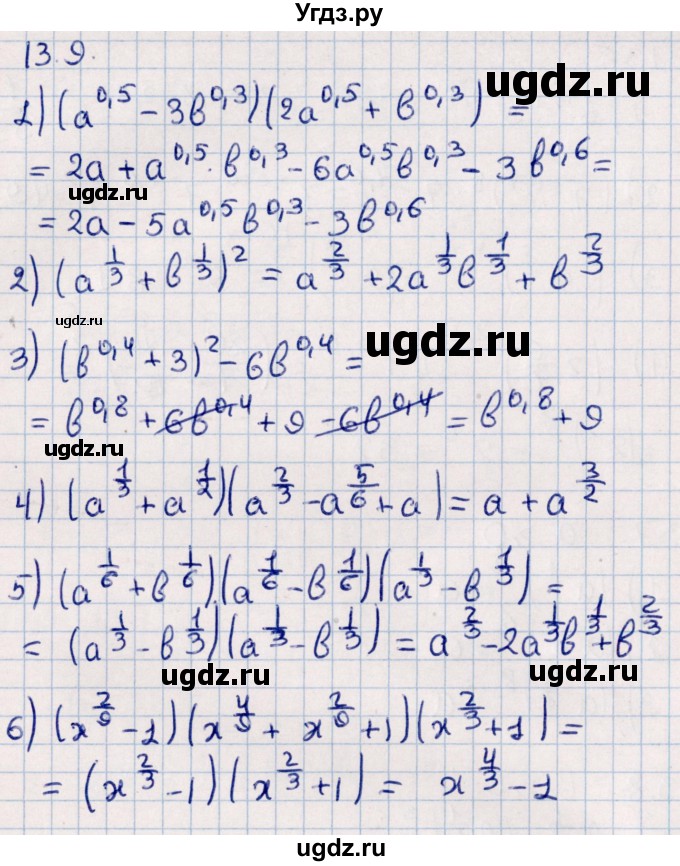 Угдз.ру
13.9.
1) (a^0,5 − 3b^0,3)(2a^0,5 + b^0,3) =
ugdz.ru
= 2a + a^0,5 · b^0,3 − 6a^0,5 b^0,3 − 3b^0,6 =
ugdz.ru
= 2a − 5a^0,5 b^0,3 − 3b^0,6
2) (a^1/3 + b^1/3)^2 = a^2/3 + 2a^1/3 b^1/3 + b^2/3
ugdz.ru
3) (b^0,4 + 3)^2 − 6b^0,4 =
ugdz.ru
= b^0,8 + 6b^0,4 + 9 − 6b^0,4 = b^0,8 + 9
ugdz.ru
4) (a^1/3 + a^1/2)(a^2/3 − a^5/6 + a) = a + a^3/2
5) (a^1/6 + b^1/6)(a^1/6 − b^1/6)(a^1/3 − b^1/3) =
= (a^1/3 − b^1/3)(a^1/3 − b^1/3) = a^2/3 − 2a^1/3 b^1/3 + b^2/3
ugdz.ru
6) (x^2/9 − 1)(x^4/9 + x^2/9 + 1)(x^2/3 + 1) =
= (x^2/3 − 1)(x^2/3 + 1) = x^4/3 − 1
ugdz.ru
ugdz.ru